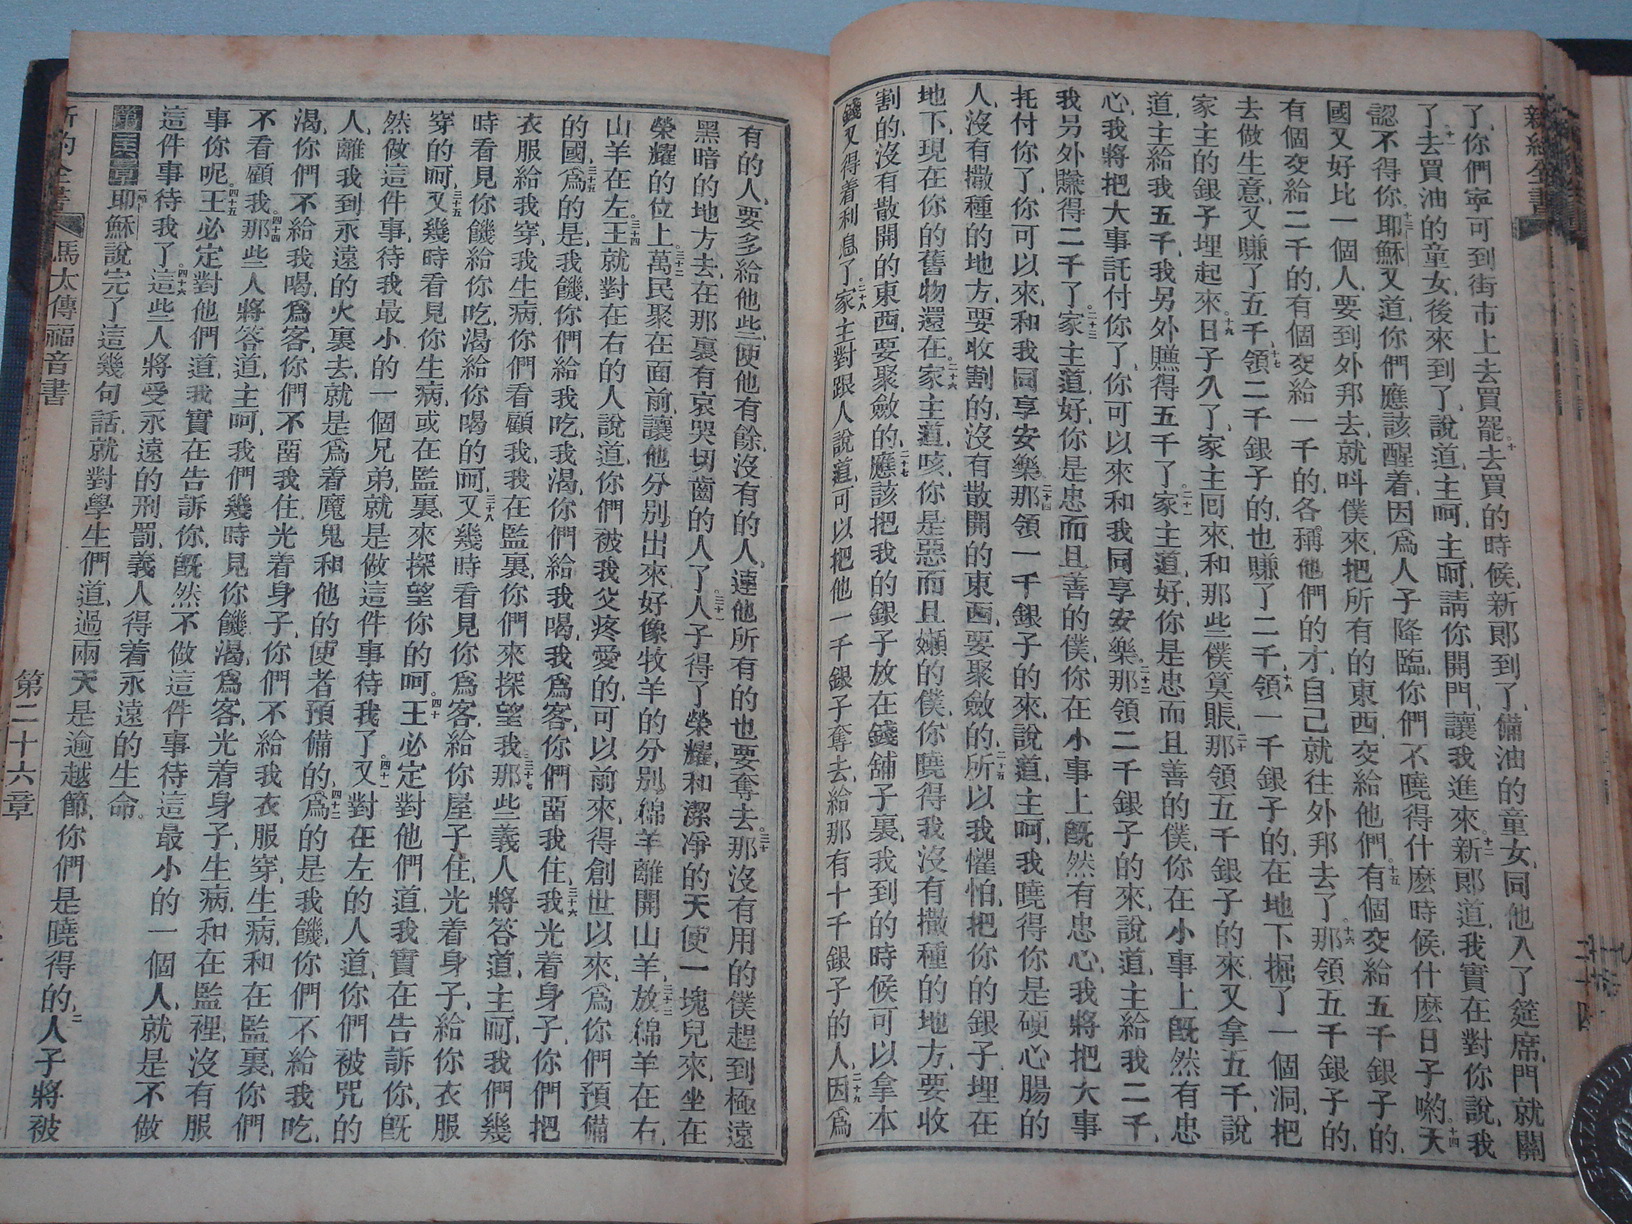 新約全書
了、你們寧可到街市上去買罷。十去買的時候、新郎到了、備油的童女、同他入了筵席、門就關
了。十一去買油的童女、後來到了、說道、主呵、主呵、請你開門、讓我進來。十二新郎道、我實在對你說、我
認不得你。十三耶穌又道、你們應該醒着、因爲人子降臨、你們不曉得什麽時候、什麽日子喲。十四天
國又好比一個人、要到外邦去、就呌僕來、把所有的東西、交給他們。十五有個交給五千銀子的、
有個交給二千的、有個交給一千的、各稱他們的才、自己就往外邦去了。十六那領五千銀子的、
去做生意、又賺了五千。十七領二千銀子的、也賺了二千。十八領一千銀子的、在地下掘了一個洞、把
家主的銀子埋起來。十九日子久了、家主囘來、和那些僕算賬。二十那領五千銀子的來、又拿五千、說
道、主給我五千、我另外賺得五千了。二十一家主道、好、你是忠而且善的僕、你在小事上旣然有忠
心、我將把大事託付你了、你可以來和我同享安樂。二十二那領二千銀子的來、說道、主給我二千、
我另外賺得二千了。二十三家主道、好、你是忠而且善的僕、你在小事上旣然有忠心、我將把大事
托付你了、你可以來、和我同享安樂。二十四那領一千銀子的來、說道、主呵、我曉得你是硬心腸的
人、沒有撒種的地方、要收割的、沒有散開的東西、要聚斂的。二十五所以我懼怕、把你的銀子埋在
地下、現在你的舊物還在。二十六家主道、咳、你是惡而且嬾的僕、你曉得我沒有撒種的地方、要收
割的、沒有散開的東西、要聚斂的。二十七應該把我的銀子放在錢舖子裏、我到的時候、可以拿本
錢、又得着利息了。二十八家主對跟人說道、可以把他一千銀子奪去、給那有十千銀子的人。二十九因爲
有的人、要多給他些、使他有餘、沒有的人、連他所有的也要奪去。三十那沒有用的僕、趕到極遠
黑暗的地方去、在那裏有哀哭切齒的人了。三十一人子得了榮耀、和潔凈的天使一塊兒來、坐在
榮耀的位上。三十二萬民聚在面前、讓他分別出來、好像牧羊的分別綿羊離開山羊。三十三放綿羊在右、
山羊在左。三十四王就對在右的人說道、你們被我父疼愛的、可以前來、得創世以來、爲你們預備
的國。三十五爲的是我饑、你們給我吃、我渴、你們給我喝、我爲客、你們畱我住。三十六我光着身子、你們把
衣服給我穿、我生病、你們看顧我、我在監裏、你們來探望我。三十七那些義人將答道、主呵、我們幾
時看見你饑、給你吃、渴、給你喝的呵。三十八又幾時看見你爲客、給你屋子住、光着身子、給你衣服
穿的呵。三十九又幾時看見你生病、或在監裏、來探望你的呵。四十王必定對他們道、我實在告訴你、旣
然做這件事、待我最小的一個兄弟、就是做這件事待我了。四十一又對在左的人道、你們被咒的
人、離我到永遠的火裏去、就是爲着魔鬼和他的使者預備的。四十二爲的是我饑、你們不給我吃、
渴、你們不給我喝。爲客、你們不畱我住、光着身子、你們不給我衣服穿、生病、和在監裏、你們
不看顧我。四十四那些人將答道、主呵、我們幾時見你饑、渴、爲客、光着身子、生病、和在監裡、沒有服
事你呢。四十五王必定對他們道、我實在告訴你、旣然不做這件事、待這最小的一個人、就是不做
這件事待我了。四十六這些人將受永遠的刑罰、義人得着永遠的生命。
耶穌說完了這幾句話、就對學生們道、過兩天是逾越節、你們是曉得的、人子將被
馬太傳福音書　第二十六章